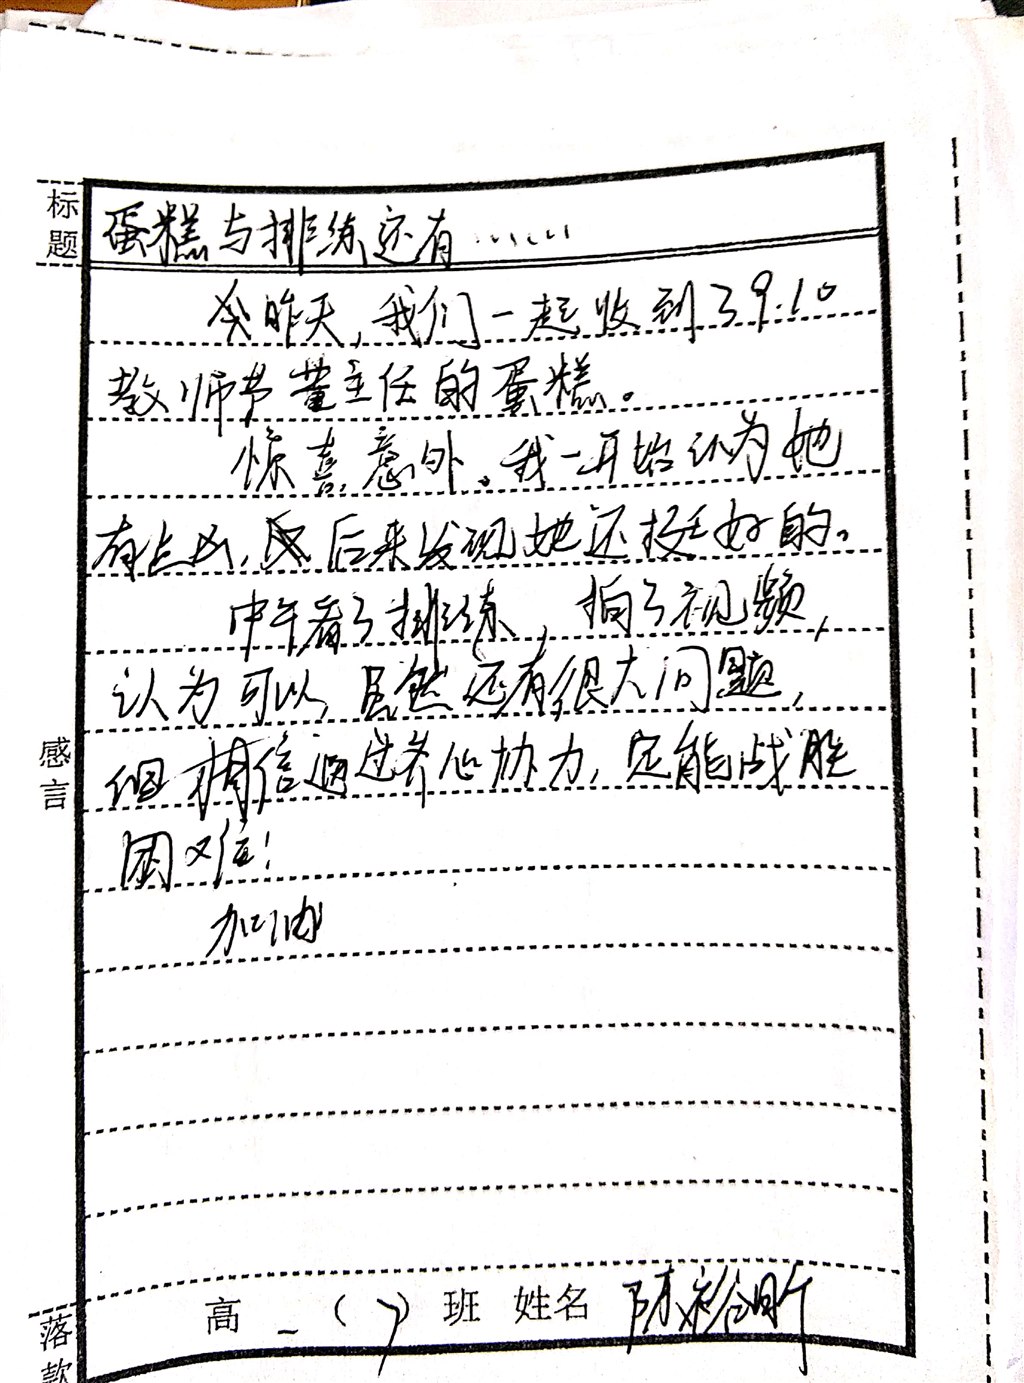 标题
蛋糕与排练还有……
昨天,我们一起收到了9.10
教师节董主任的蛋糕。
惊喜意外。我一开始认为她
有点凶,后来发现她还挺好的。
中午看了排练,拍了视频,
认为可以,虽然还有很大问题,
但相信通过齐心协力,定能战胜
困难!
加油
感言
落款
高一(7)班 姓名 陈裕昕